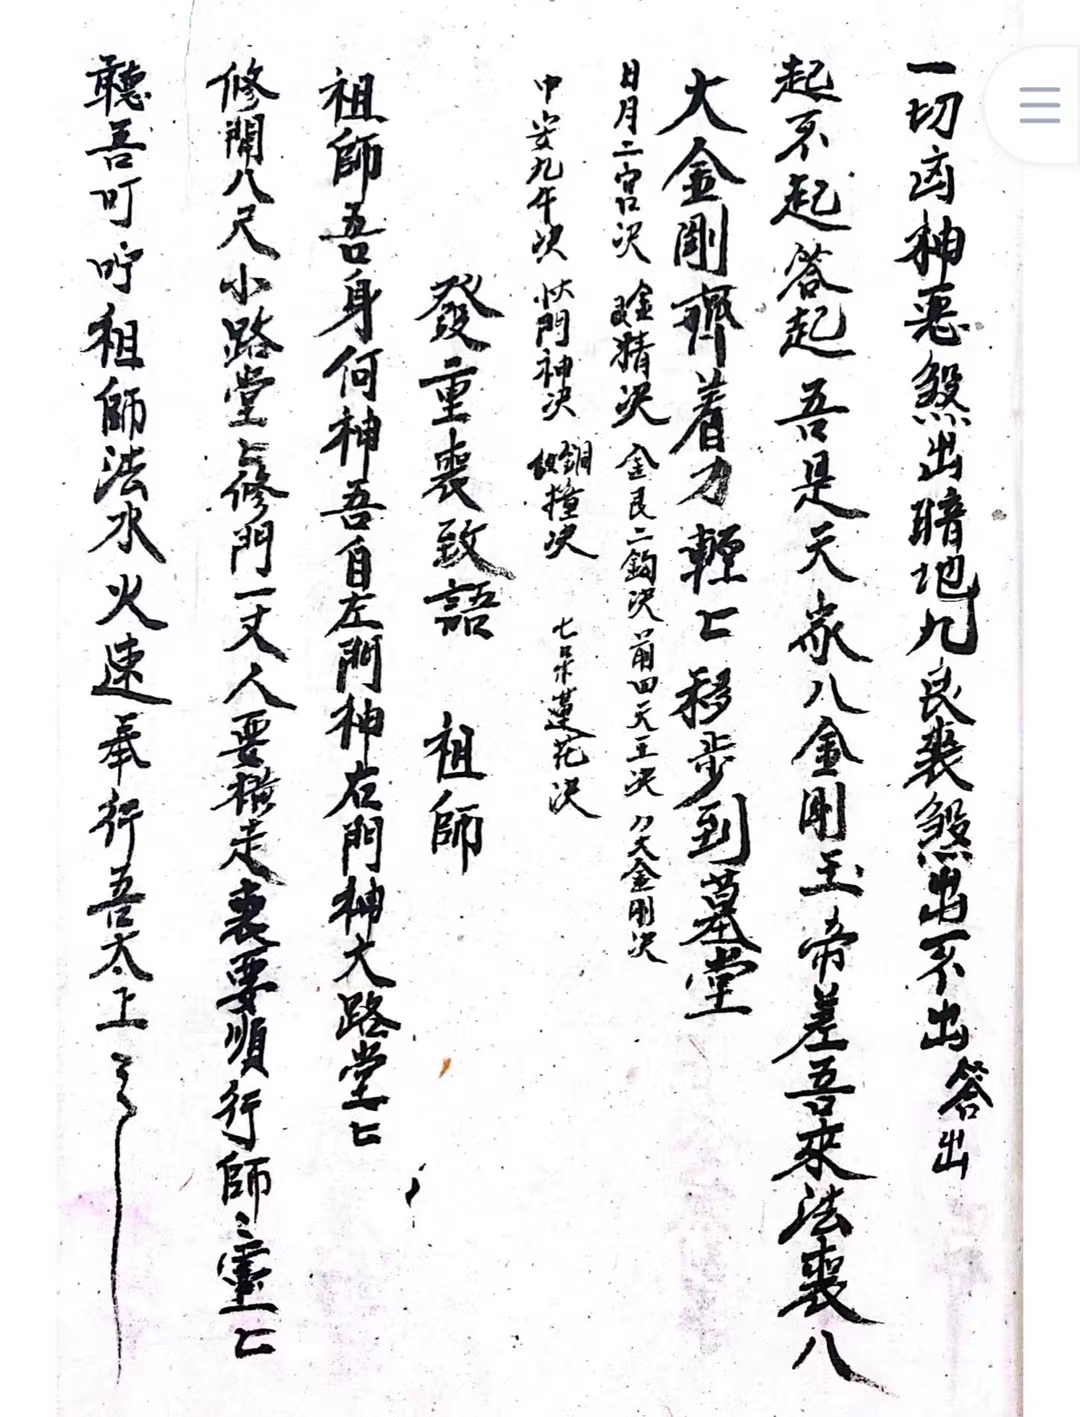 一切凶神惡煞出暗地九良喪煞出不出答出
起不起答起吾是天家八金剛玉帝差吾來法喪八
大金剛齊着力輕匕移步到墓堂
日月二宮決 金精決 金良二鈎決 前四天王決 八大金剛決
中安九午決 門神決 銅撞決 七朵蓮花決
發重喪致語 祖師
祖師吾身何神吾自左門神右門神大路堂匕
修開八尺小路堂匕修門一丈人要橫走喪要順行師〻靈匕
聽吾叮嚀祖師法水火速奉行吾太上〻